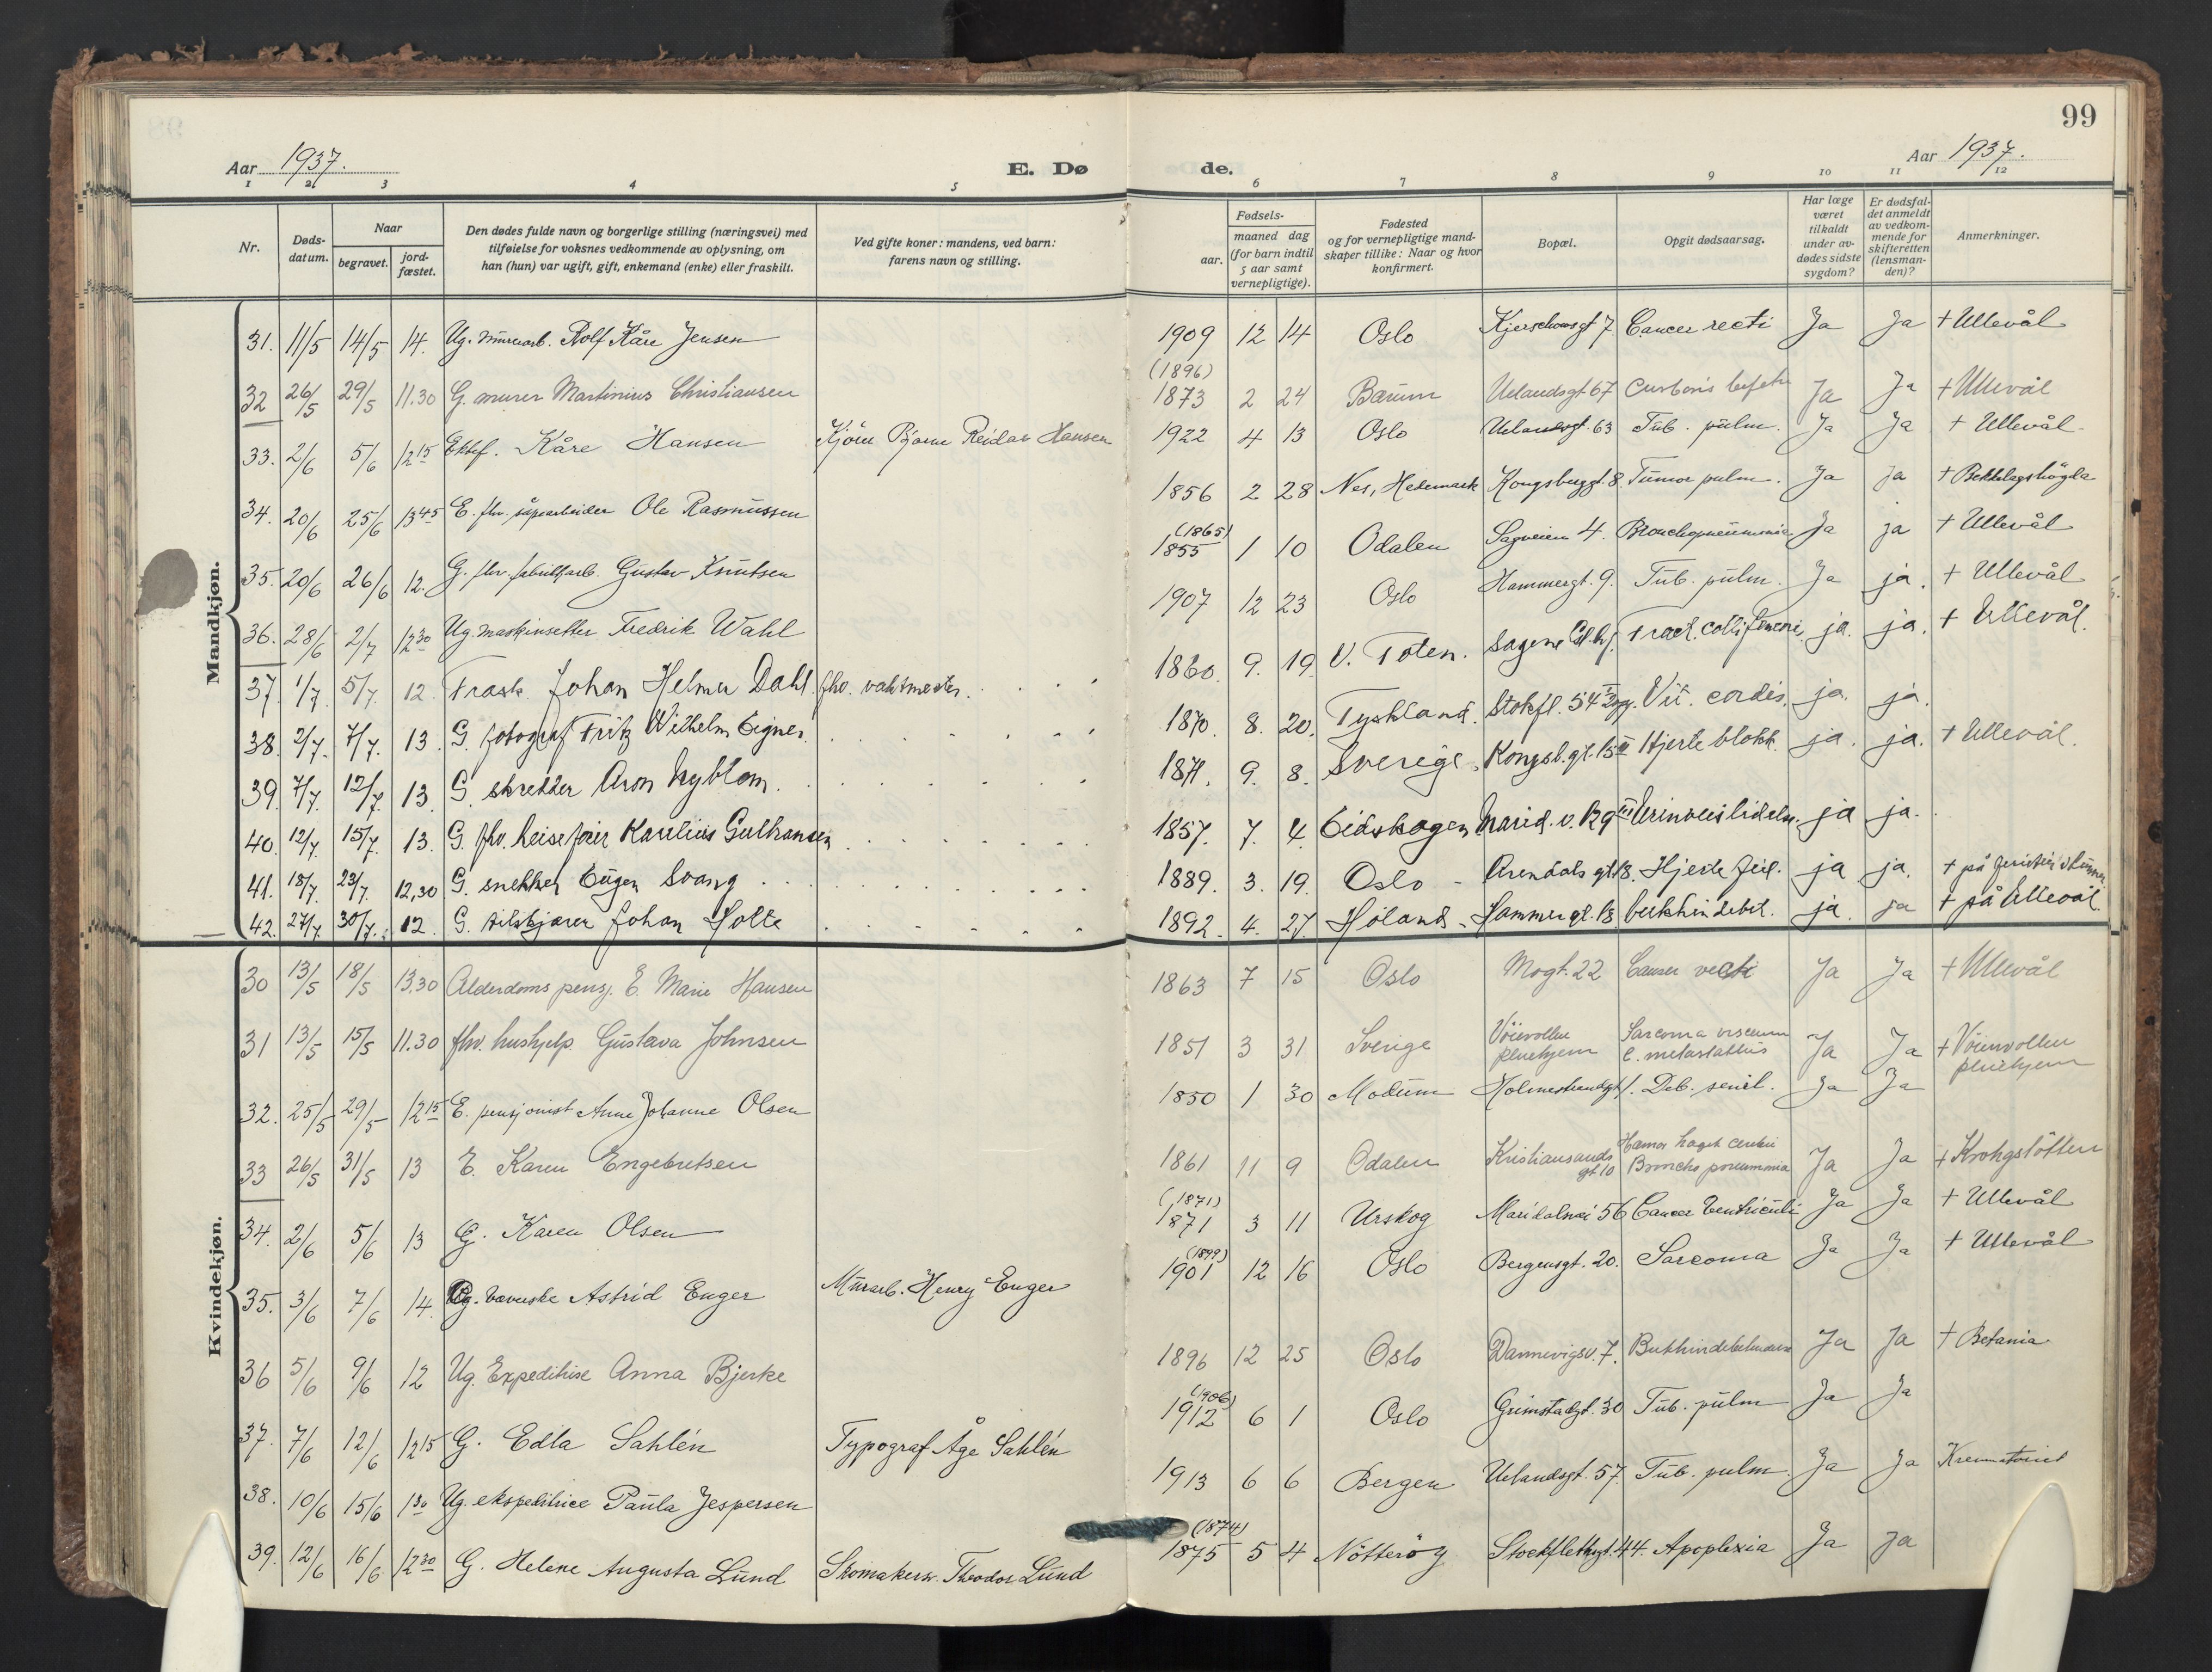 99
Aar 1937.
E. Døde.
Aar 1937.
1 2 3 4 5 6 7 8 9 10 11 12
Nr.
Døds-datum.
Naar
begravet.
jord-fæstet.
Den dødes fulde navn og borgerlige stilling (næringsvei) med
tilføielse for voksnes vedkommende av oplysning, om
han (hun) var ugift, gift, enkemand (enke) eller fraskilt.
Ved gifte koner: mandens, ved barn:
farens navn og stilling.
Fødsels-
aar.
maaned dag
(for barn indtil
5 aar samt
vernepligtige).
Fødested
og for vernepligtige mand-
skaper tillike: Naar og hvor
konfirmert.
Bopæl.
Opgit dødsaarsag.
Har læge
været
tilkaldt
under av-
dødes sidste
sygdom?
Er dødsfal-
det anmeldt
av vedkom-
mende for
skifteretten
(lensman-
den)?
Anmerkninger.
Mandkjøn.
31. 11/5 14/5 14. Ug. murarb. Rolf Kåre Jensen 1909 12 14 Oslo Kjerschowsgt 7 Cancer recti Ja Ja + Ullevål
32 26/5 29/5 11.30 G. murer Martinius Christiansen (1896) 1873 2 24 Bærum Uelandsgt. 67 Ja Ja + Ullevål
33. 2/6 5/6 12 15 Ektef. Kåre Hansen Kjöre Bjarne Reidar Hansen 1922 4 13 Oslo Uelandsgt. 63 Tub. pulm. Ja Ja + Ullevål
34. 20/6 25/6 13 45 E. fhv. såpearbeider Ole Rasmussen 1856 2 28 Nes, Hedemark Kongsberggt. 8 Tumor pulm. Ja Ja + Bekkelagshögda
35. 20/6 26/6 12. G. fhv. fabrikkarb. Gustav Knutsen (1865) 1855 1 10 Odalen Sagveien 4. Bronchopneumonia Ja ja + Ullevål
36. 28/6 2/7 12 30 Ug. maskinsetter Fredrik Wahl 1907 12 23 Oslo Hammergt. 9. Tub. pulm. Ja ja. + Ullevål
37. 1/7. 5/7. 12. Frask. Johan Helmer Dahl. fhv. vaktmester. 1860. 9. 19. V. Toten. Sagene Fract. colli femori. ja. ja. + Ullevål.
38. 2/7. 7/7. 13. G. fotograf Fritz Wilhelm Eigner. 1870. 8. 20. Tyskland. Stokfl. 54 Vit. cordis. ja. ja.
39. 7/7. 12/7. 13. G. skredder Aron Nyblom. 1871. 9. 8. Sverige. Kongsb. gt. 15 II Hjerteblokk. ja. ja. + Ullevål.
40. 12/7. 15/7. 13. G. fhv. heisefører Karelius Gulbransen 1857. 7. 4. Eidskogen Marid. v. Urinveislidelse. ja ja.
41. 18/7. 23/7. 12,30 G. snekker Eugen Svang 1889. 3. 19. Oslo Arendals gt. 18. Hjertefeil. ja ja.
42. 27/7. 30/7. 12. G. stilskjærer Johan Holte 1892. 4. 27. Høland Hammer gt. 13 ja. ja + på Ullevål.
Kvindekjøn.
30 13/5 18/5 13.30 Alderdoms pensj. E. Marie Hansen 1863 7 15 Oslo Mogt. 22 Cancer recti Ja Ja + Ullevål
31 13/5 15/5 11.30 fhv. hushjelp Gustava Johnsen 1851 3 31 Sverige Vöienvollen pleiehjem Sarcoma Ja Ja + Vöienvollen pleiehjem
32. 25/5 29/5 12 15 E. pensjonist Anne Johanne Olsen 1850 1 30 Modum Holmestrandgt 1. Deb. senil. Ja Ja
33 26/5 31/5 13 E. Karen Engebretsen 1861 11 9 Odalen Kristiansands gt. 10 Broncho pneumonia Ja Ja + Krohgstötten
34. 2/6 5/6 13 G. Karen Olsen (1871) 1871 3 11 Urskog Maridalsvei 56 Cancer Ventriculi Ja Ja + Ullevål
35. 3/6 7/6 14. G. Væverske Astrid Enger Murarb. Henry Enger (1899) 1901 12 16 Oslo Bergensgt. 20. Sarcoma Ja Ja + Ullevål
36 5/6 9/6 12 Ug. Expeditrise Anna Bjerke 1896 12 25 Oslo Dannevigsv. 7. Ja Ja + Betania
37. 7/6 12/6 12 15 G. Edla Sahlén Typograf Åge Sahlén (1906) 1912 6 1 Oslo Grimstadgt. 30 Tub. pulm Ja Ja
38. 10/6 15/6 1 30 Ug. ekspeditrice Paula Jespersen 1913 6 6 Bergen Uelandsgt. 57. Tub. pulm. Ja Ja Krematoriet
39. 12/6 16/6 12 30 G. Helene Augusta Lund Skomakerm. Theodor Lund (1874) 1875 5 4 Nötteröy Stockflethsgt. 44. Apoplexia Ja Ja